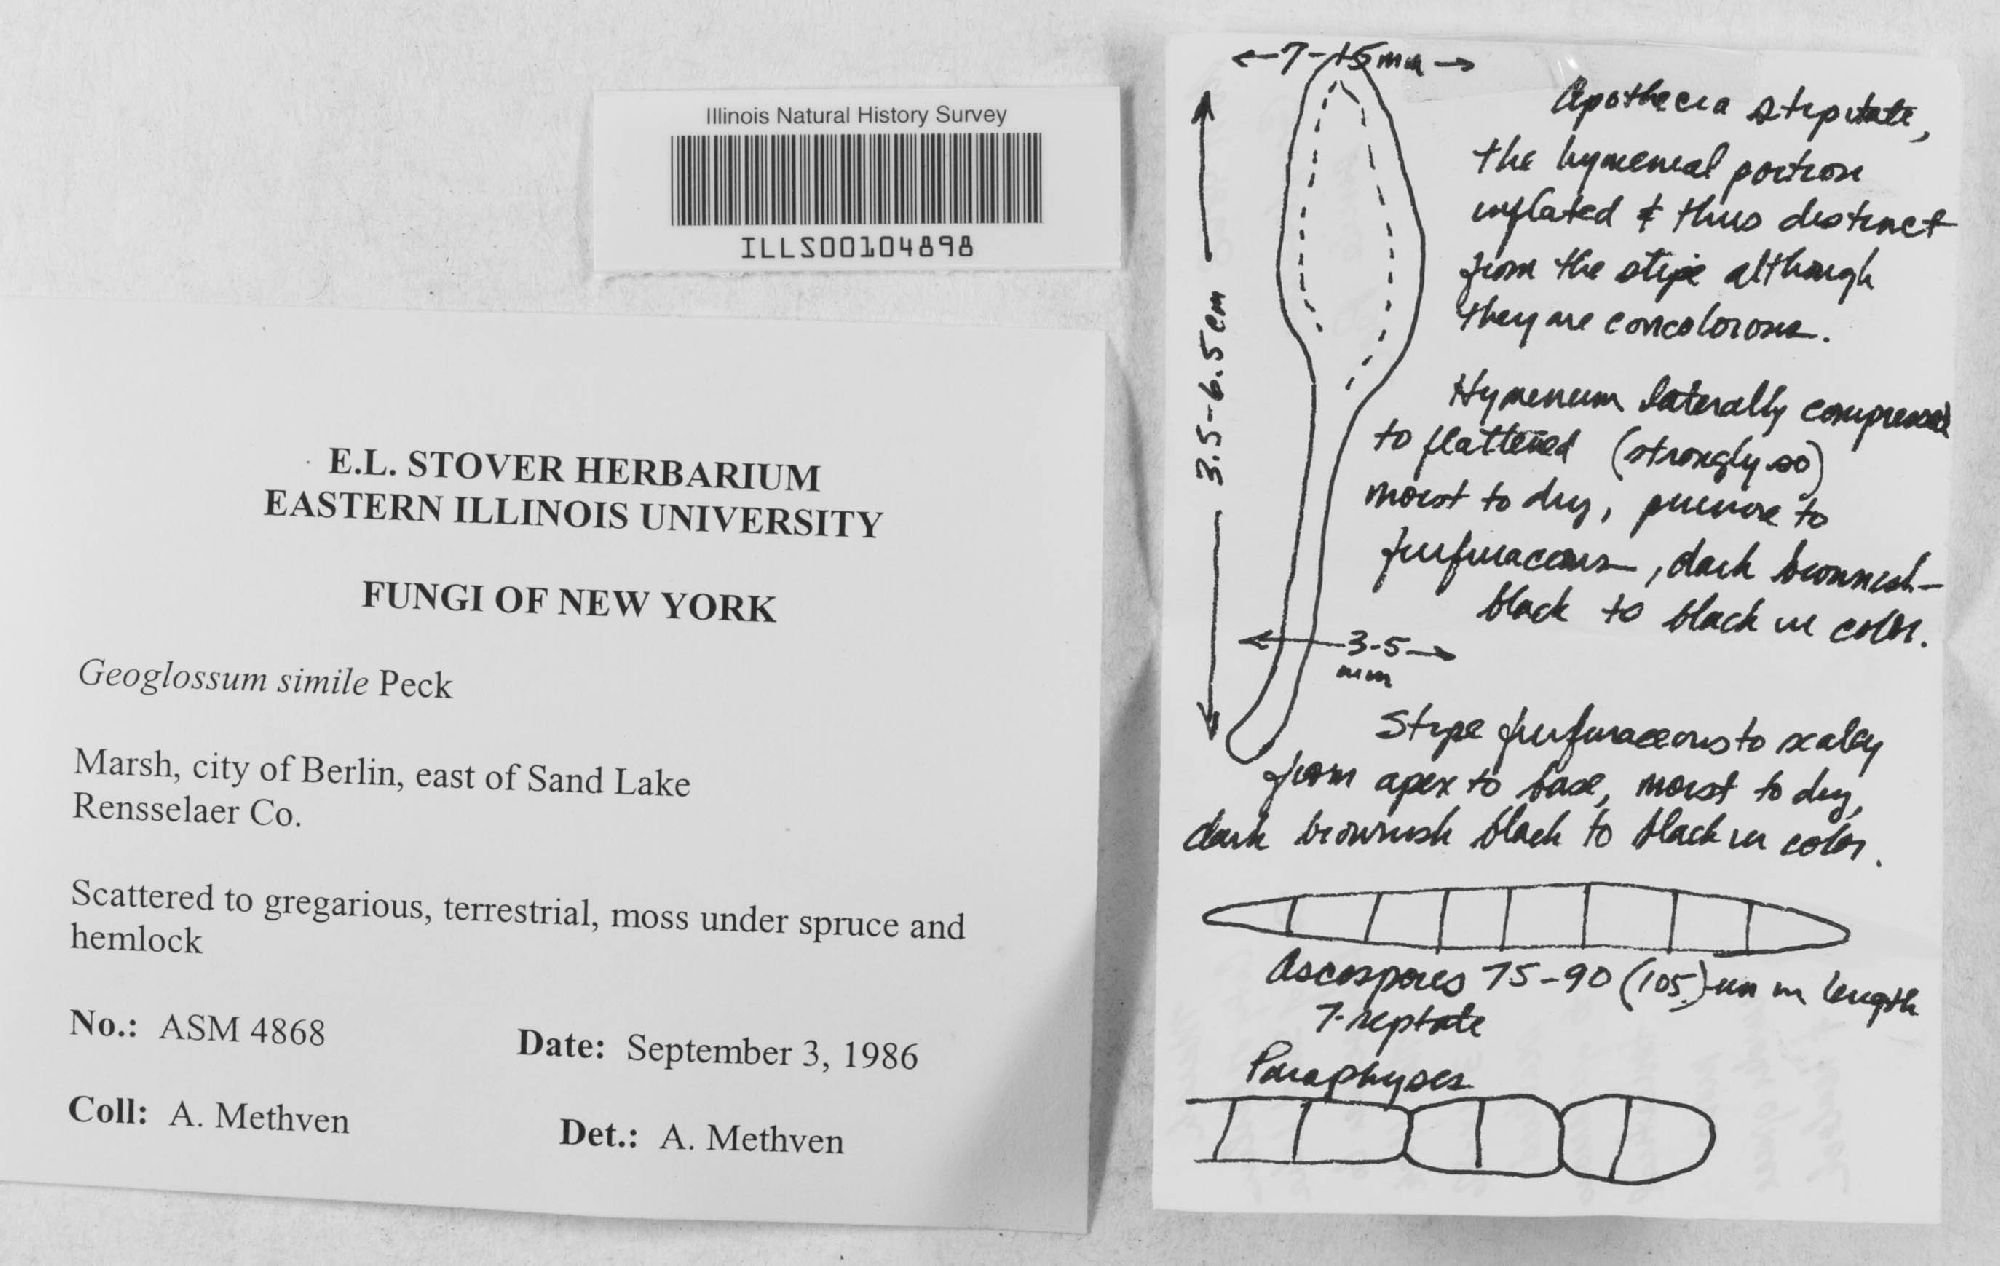 Illinois Natural History Survey
ILLS00104898
E.L. STOVER HERBARIUM
EASTERN ILLINOIS UNIVERSITY
FUNGI OF NEW YORK
Geoglossum simile Peck
Marsh, city of Berlin, east of Sand Lake
Rensselaer Co.
Scattered to gregarious, terrestrial, moss under spruce and
hemlock
No.: ASM 4868
Date: September 3, 1986
Coll: A. Methven
Det.: A. Methven
7-15mm
3.5-6.5cm
Apothecia stipitate,
the hymenial portion
inflated & thus distinct
from the stipe although
they are concolorous.
Hymenium laterally compressed
to flattened (strongly so)
moist to dry, pruinose to
furfuraceous, dark brownish-
black to black in color.
3-5
mm
Stipe furfuraceous to scaley
from apex to base, moist to dry,
dark brownish black to black in color.
Ascospores 75-90 (105) um in length
7-septate
Paraphyses